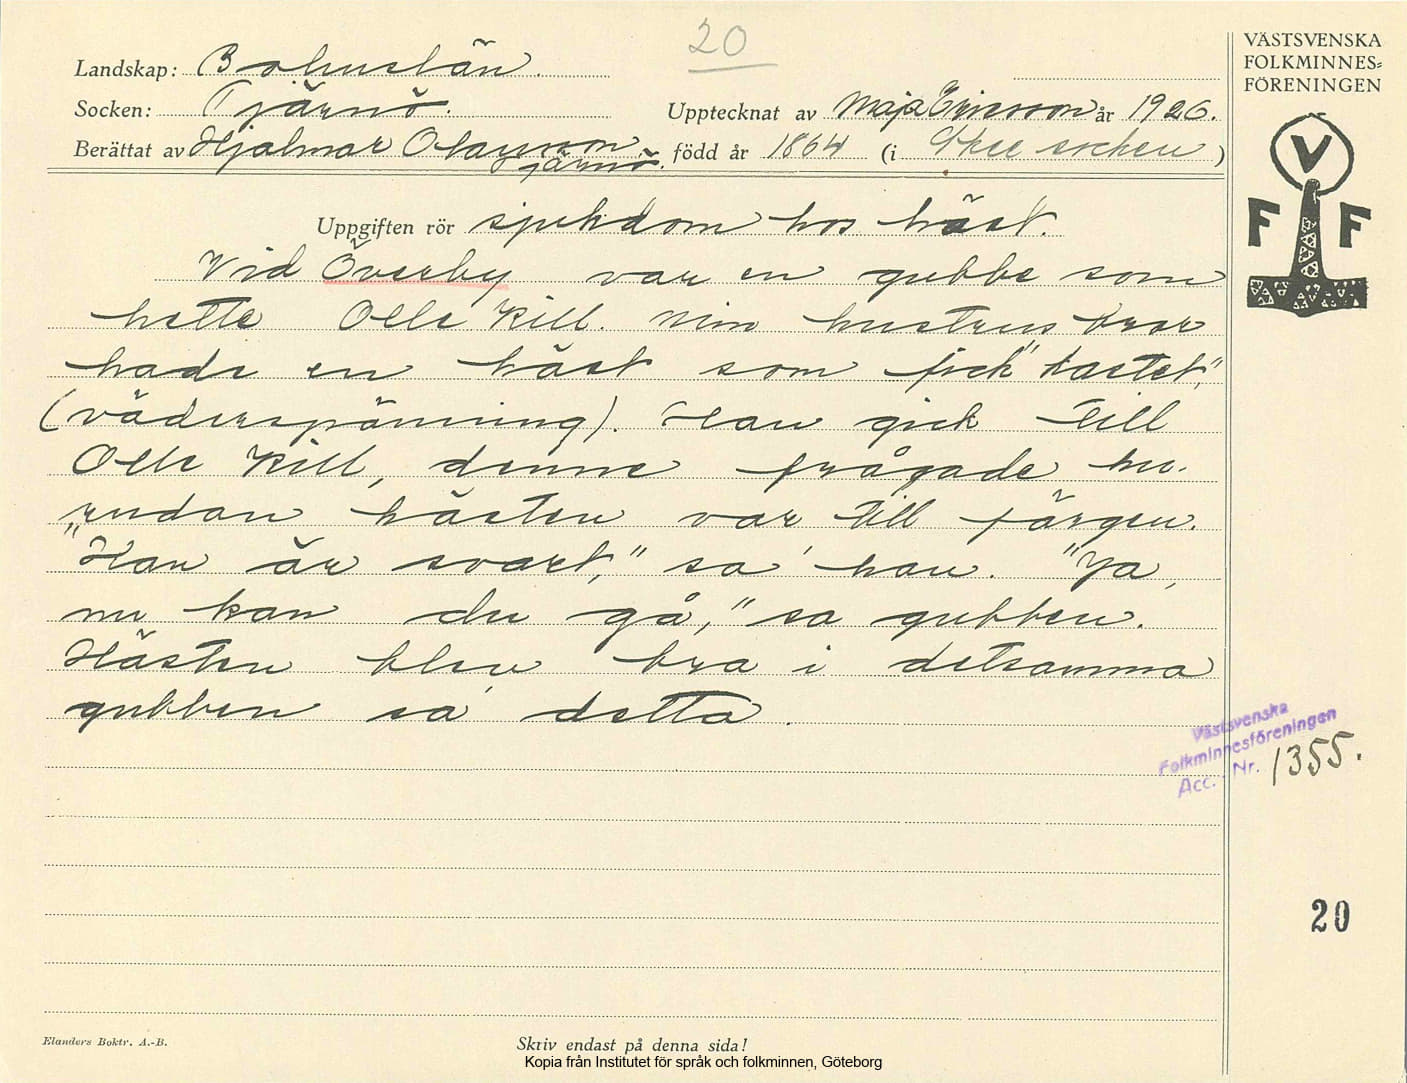 20
Landskap: Bohuslän.
Socken: Tjärnö.
Upptecknat av Maja Ericsson år 1926.
Berättat av Hjalmar Olausson,
Tjärnö.
född år 1864 (i Skee socken)
VÄSTSVENSKA
FOLKMINNES=
FÖRENINGEN
V
F F
Uppgiften rör sjukdom hos häst.
Vid Överby var en gubbe som
hette Olle Kill. Min hustrus bror
hade en häst som fick "kastet",
(väderspänning). Han gick till
Olle Kill, denne frågade hu-
rudan hästen var till färgen.
"Han är svart," sa' han. "Ja,
nu kan du gå," sa gubben.
Hästen blev bra i detsamma
gubben sa' detta.
Västsvenska
Folkminnesföreningen
Acc. Nr. 1355.
20
Elanders Boktr. A.-B.
Skriv endast på denna sida!
Kopia från Institutet för språk och folkminnen, Göteborg